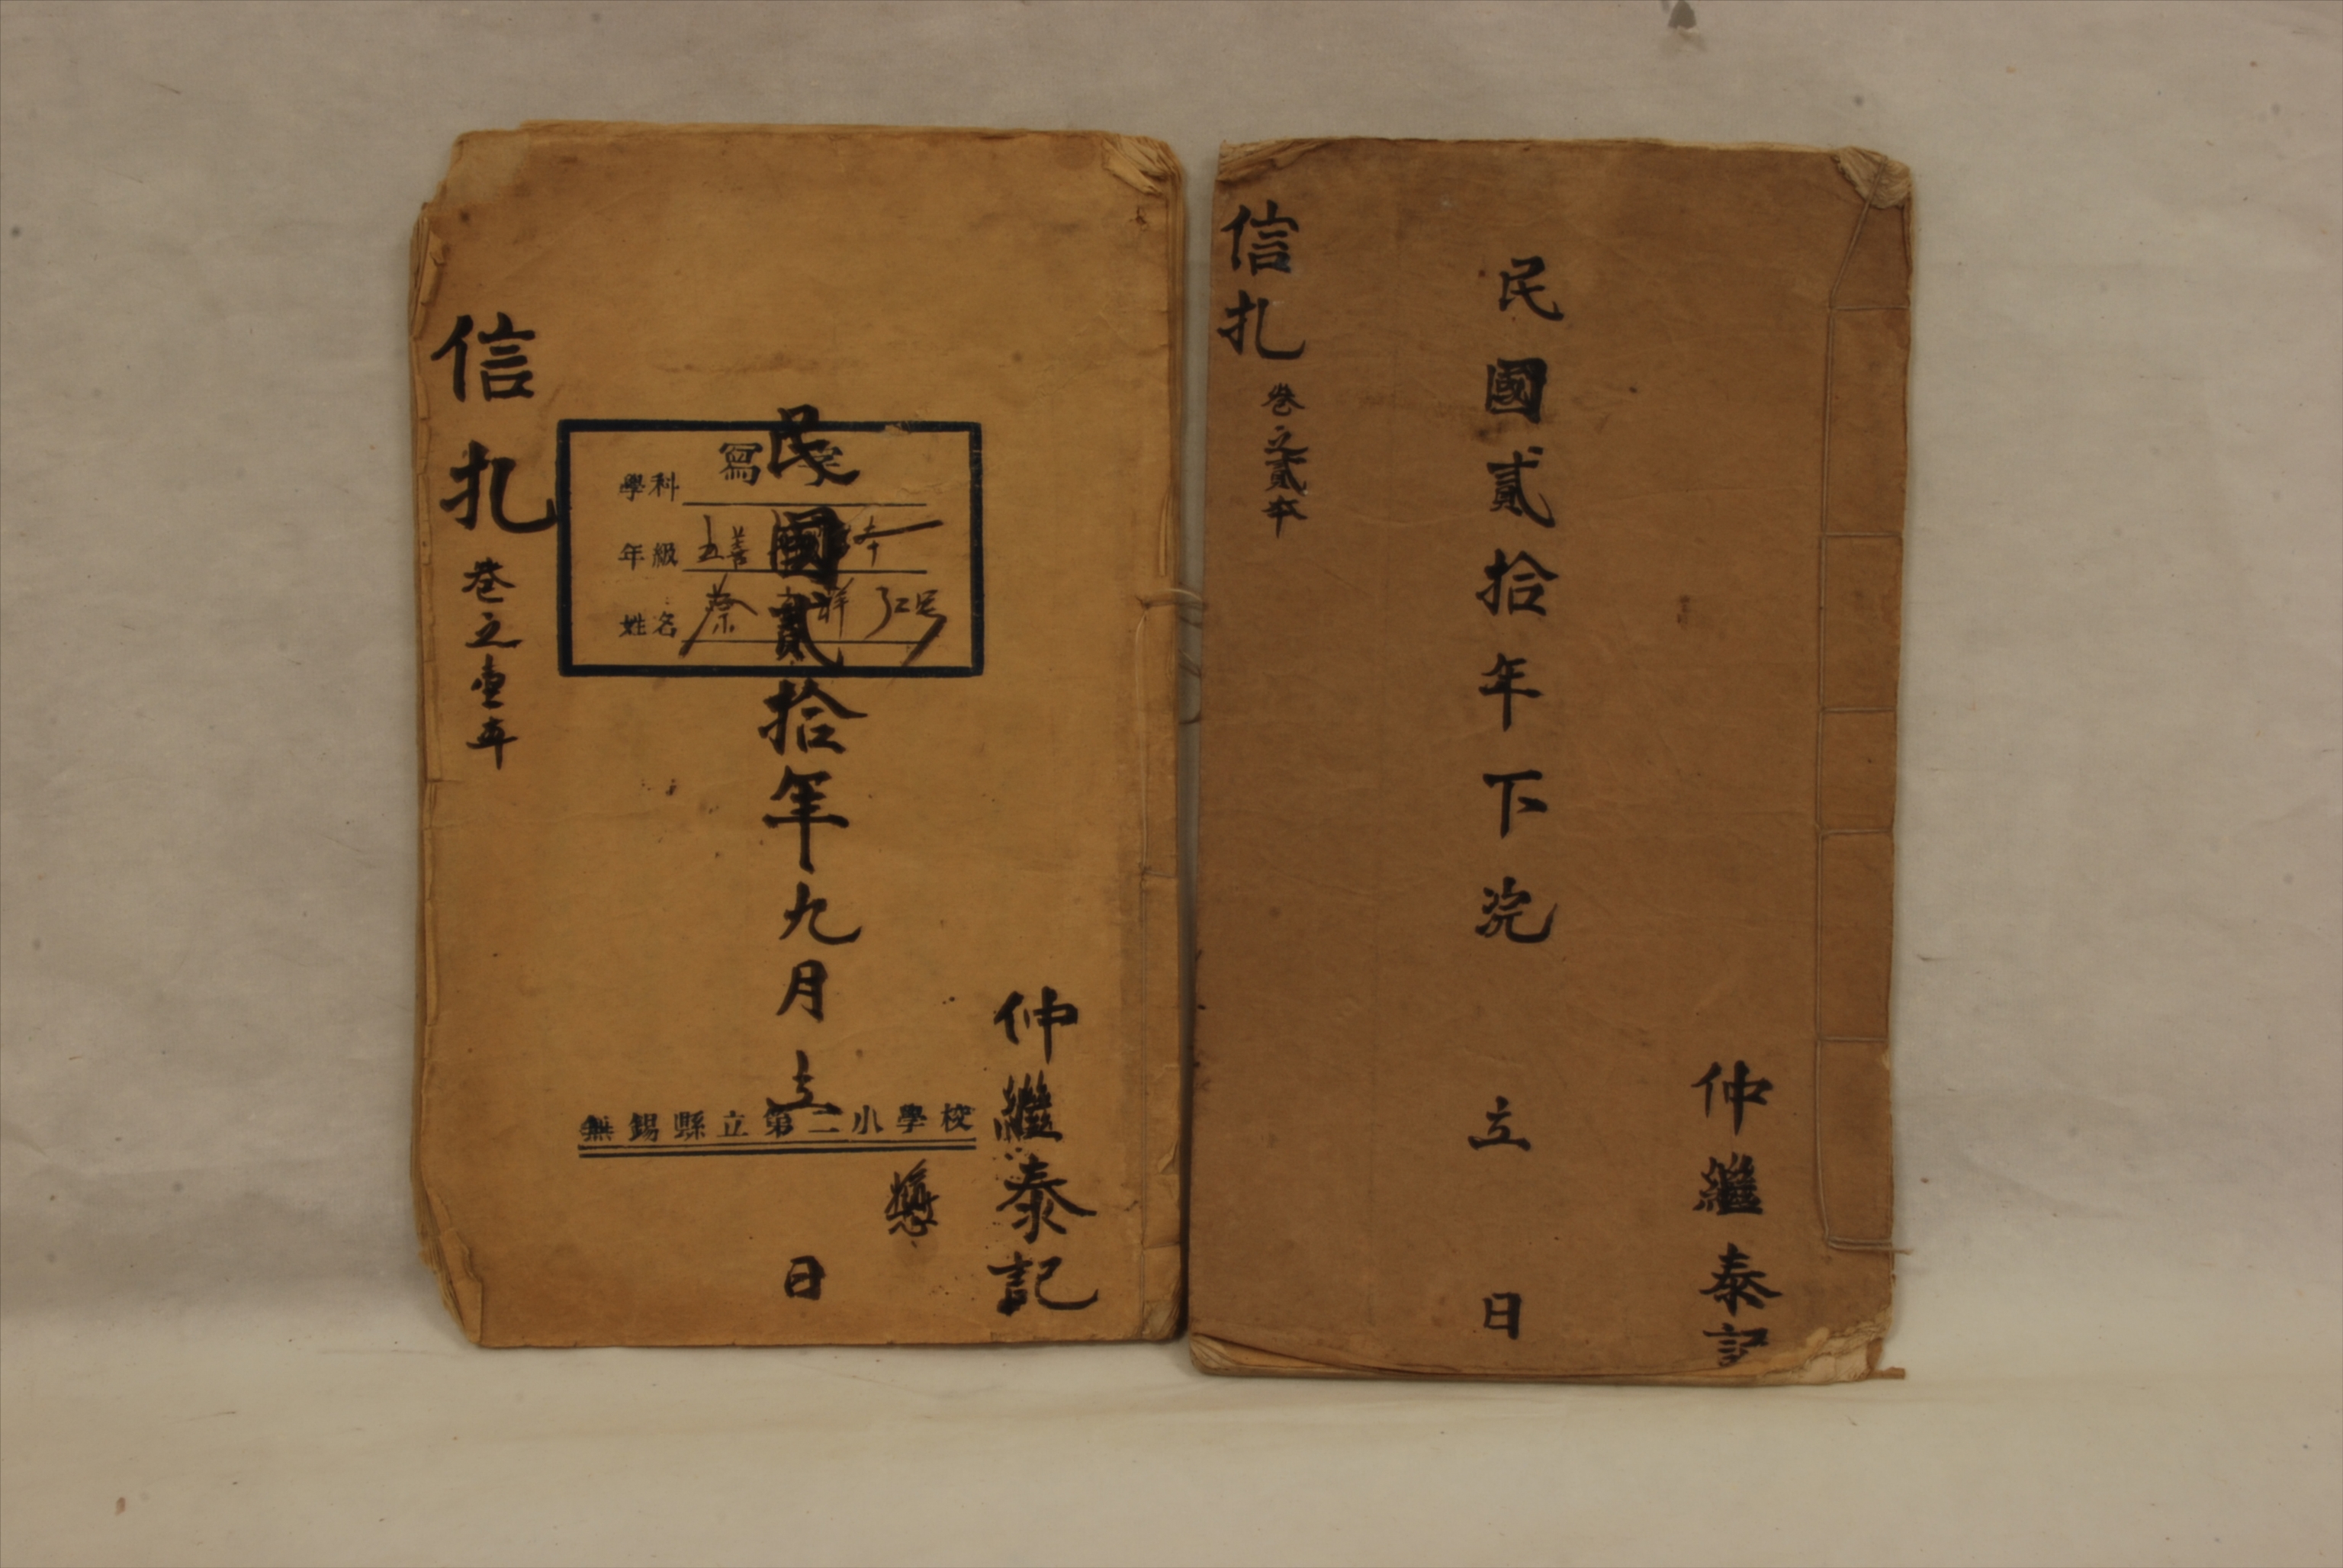 信扎
卷之壹本
學科 寫
年級
姓名 蔡
民國貳拾年九月立日
無錫縣立第二小學校
仲繼泰記
信扎
卷之貳本
民國貳拾年下浣立日
仲繼泰記